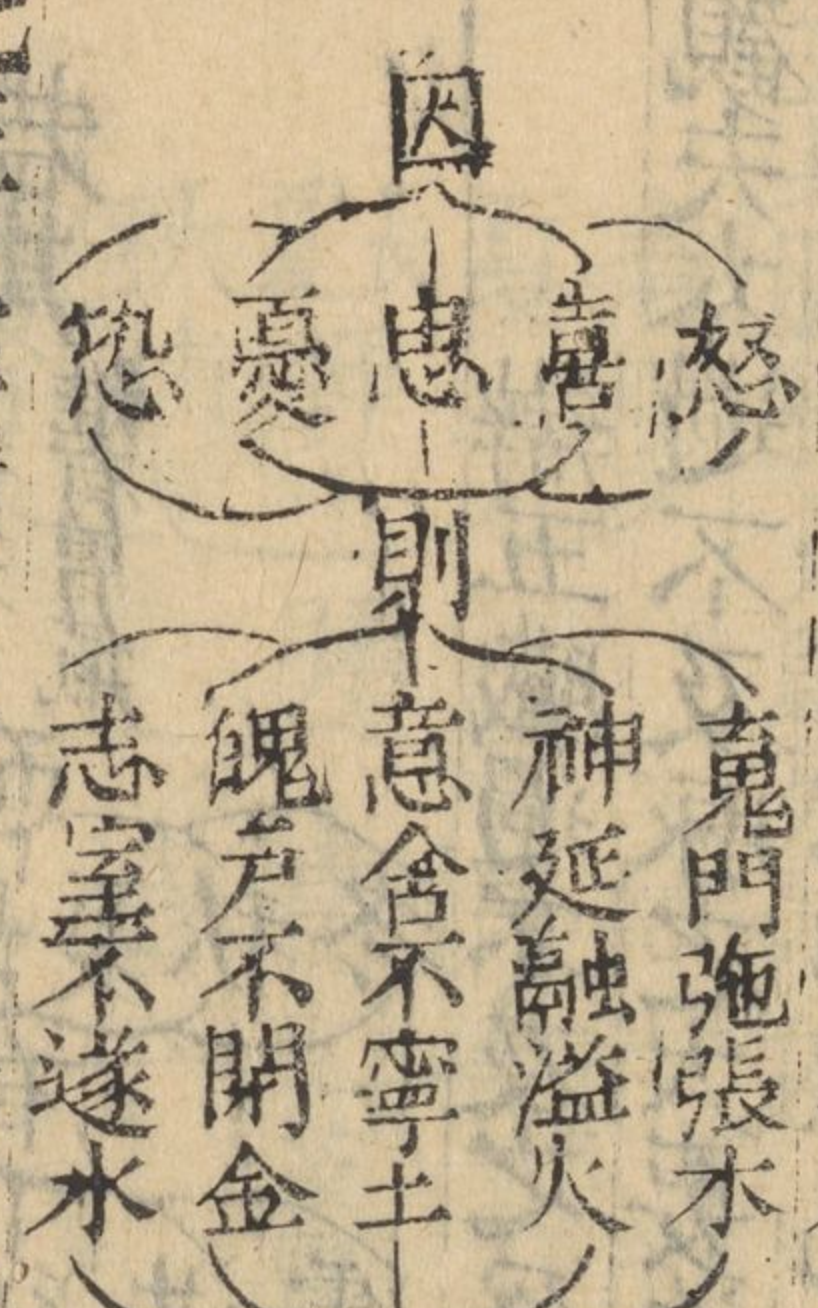 因
怒
喜
思
憂
恐
則
䰟門弛張木
神延融溢火
意舍不寧土
魄戶不閉金
志室不遂水